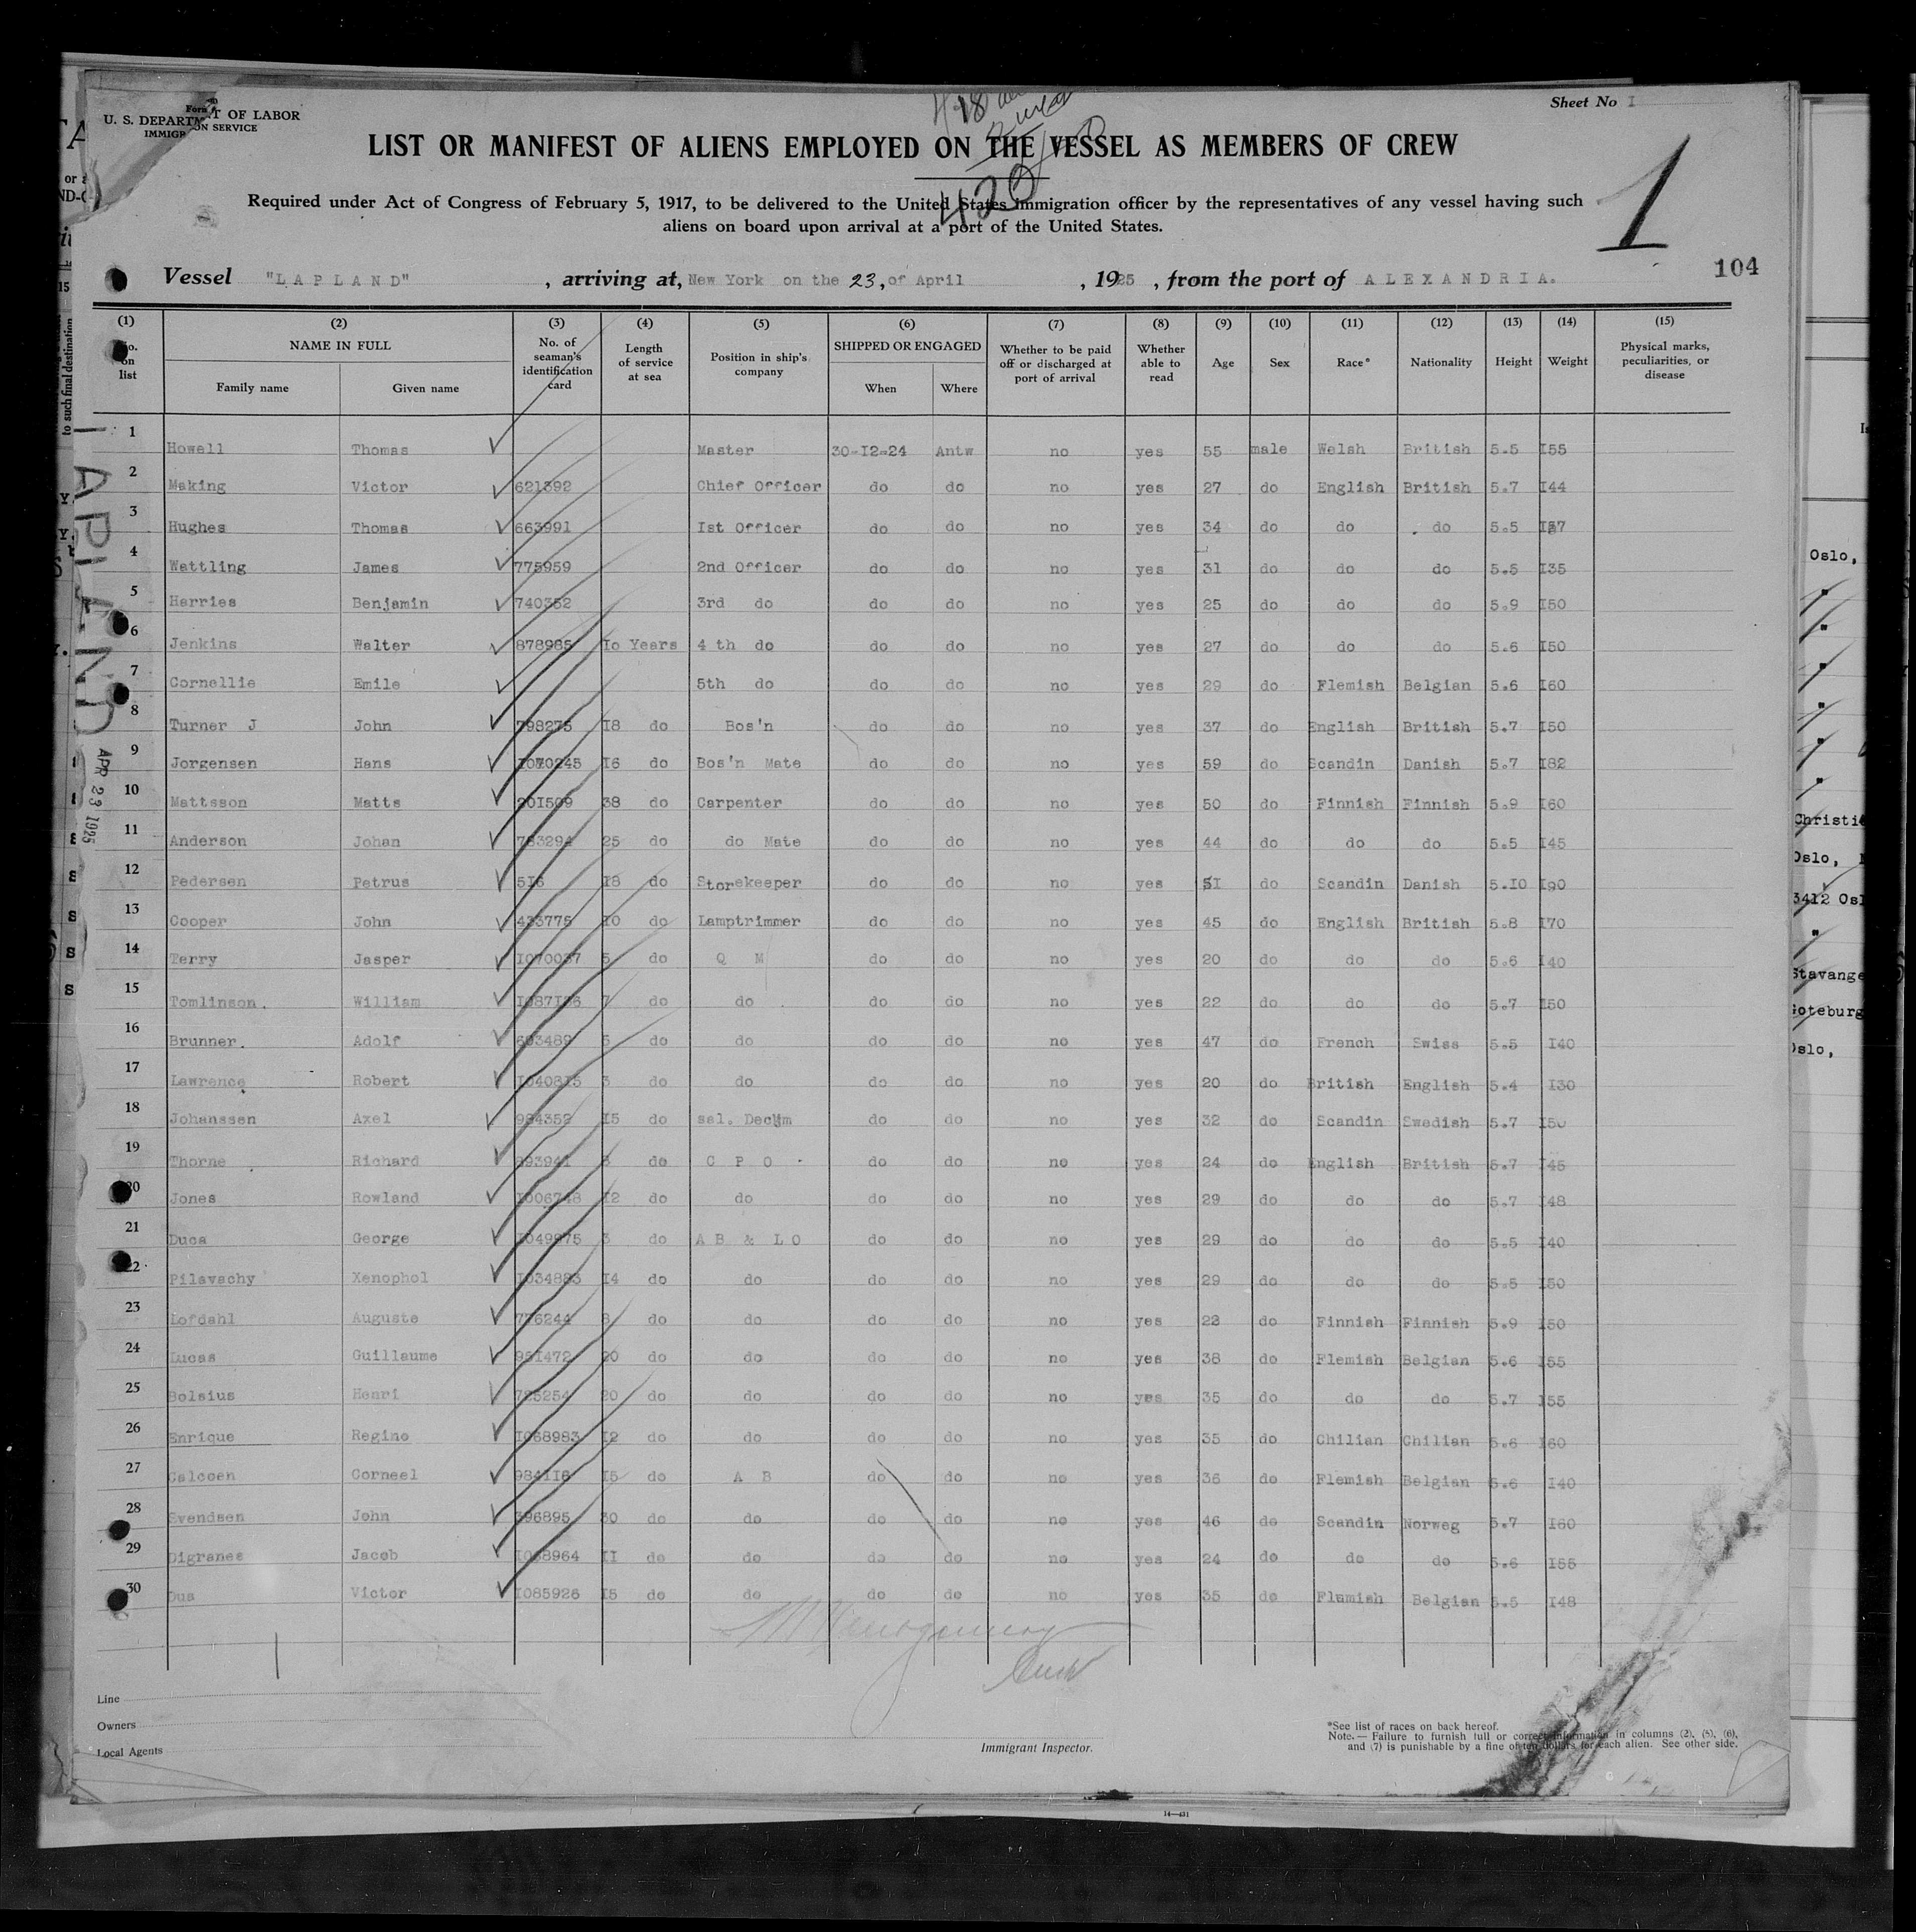 U. S. DEPARTM T OF LABOR
IMMIGR ON SERVICE
Form
Sheet No I
18
LIST OR MANIFEST OF ALIENS EMPLOYED ON THE VESSEL AS MEMBERS OF CREW
420
1
Required under Act of Congress of February 5, 1917, to be delivered to the United States immigration officer by the representatives of any vessel having such
aliens on board upon arrival at a port of the United States.
104
Vessel "LAPLAND" , arriving at, New York on the 23, of April , 1925 , from the port of ALEXANDRIA.
(1) (2) (3) (4) (5) (6) (7) (8) (9) (10) (11) (12) (13) (14) (15)
No. on list NAME IN FULL Family name Given name No. of seaman's identification card Length of service at sea Position in ship's company SHIPPED OR ENGAGED When Where Whether to be paid off or discharged at port of arrival Whether able to read Age Sex Race* Nationality Height Weight Physical marks, peculiarities, or disease
1 Howell Thomas Master 30-12-24 Antw no yes 55 male Welsh British 5.5 I55
2 Making Victor 621392 Chief Officer do do no yes 27 do English British 5.7 I44
3 Hughes Thomas 663991 Ist Officer do do no yes 34 do do do 5.5
4 Wattling James 775959 2nd Officer do do no yes 31 do do do 5.5 I35
5 Harries Benjamin 740352 3rd do do do no yes 25 do do do 5.9 I50
6 Jenkins Walter 878985 Io Years 4 th do do do no yes 27 do do do 5.6 I50
7 Cornellie Emile 5th do do do no yes 29 do Flemish Belgian 5.6 I60
8 Turner J John 798275 I8 do Bos'n do do no yes 37 do English British 5.7 I50
9 Jorgensen Hans I070245 I6 do Bos'n Mate do do no yes 59 do Scandin Danish 5.7 I82
10 Mattsson Matts 201509 38 do Carpenter do do no yes 50 do Finnish Finnish 5.9 I60
11 Anderson Johan 783294 25 do do Mate do do no yes 44 do do do 5.5 I45
12 Pedersen Petrus 5I6 I8 do Storekeeper do do no yes 5I do Scandin Danish 5.I0 I90
13 Cooper John 433775 I0 do Lamptrimmer do do no yes 45 do English British 5.8 I70
14 Terry Jasper I070037 5 do Q M do do no yes 20 do do do 5.6 I40
15 Tomlinson. William I087I36 7 do do do do no yes 22 do do do 5.7 I50
16 Brunner. Adolf 603489 5 do do do do no yes 47 do French Swiss 5.5 I40
17 Lawrence Robert I0408I5 3 do do do do no yes 20 do British English 5.4 I30
18 Johanssen Axel 994352 I5 do sal. do do no yes 32 do Scandin Swedish 5.7 I50
19 Thorne Richard 993941 3 do C P O do do no yes 24 do English British 5.7 I45
20 Jones Rowland I006748 I2 do do do do no yes 29 do do do 5.7 I48
21 Duca George I049975 3 do A B & L O do do no yes 29 do do do 5.5 I40
22 Pilavachy Xenophol I034883 I4 do do do do no yes 29 do do do 5.5 I50
23 Lofdahl Auguste 776244 8 do do do do no yes 28 do Finnish Finnish 5.9 I50
24 Lucas Guillaume 95I472 20 do do do do no yes 38 do Flemish Belgian 5.6 I55
25 Bolsius Henri 785254 20 do do do do no yes 35 do do do 5.7 I55
26 Enrique Regino I068983 I2 do do do do no yes 35 do Chilian Chilian 5.6 I60
27 Calcoen Corneel 984II6 I5 do A B do do no yes 36 do Flemish Belgian 5.6 I40
28 Svendsen John 396895 30 do do do do no yes 46 do Scandin Norweg 5.7 I60
29 Digranes Jacob I058964 II do do do do no yes 24 do do do 5.6 I55
30 Dus Victor I085926 I5 do do do do no yes 35 do Flumish Belgian 5.5 I48
LAPLAND
APR 23 1925
Line
Owners
Local Agents
Immigrant Inspector.
*See list of races on back hereof.
Note.— Failure to furnish full or correct information in columns (2), (5), (6),
and (7) is punishable by a fine of ten dollars for each alien. See other side.
14—431
to such final destination
Oslo,
Oslo,
3412
Oslo,